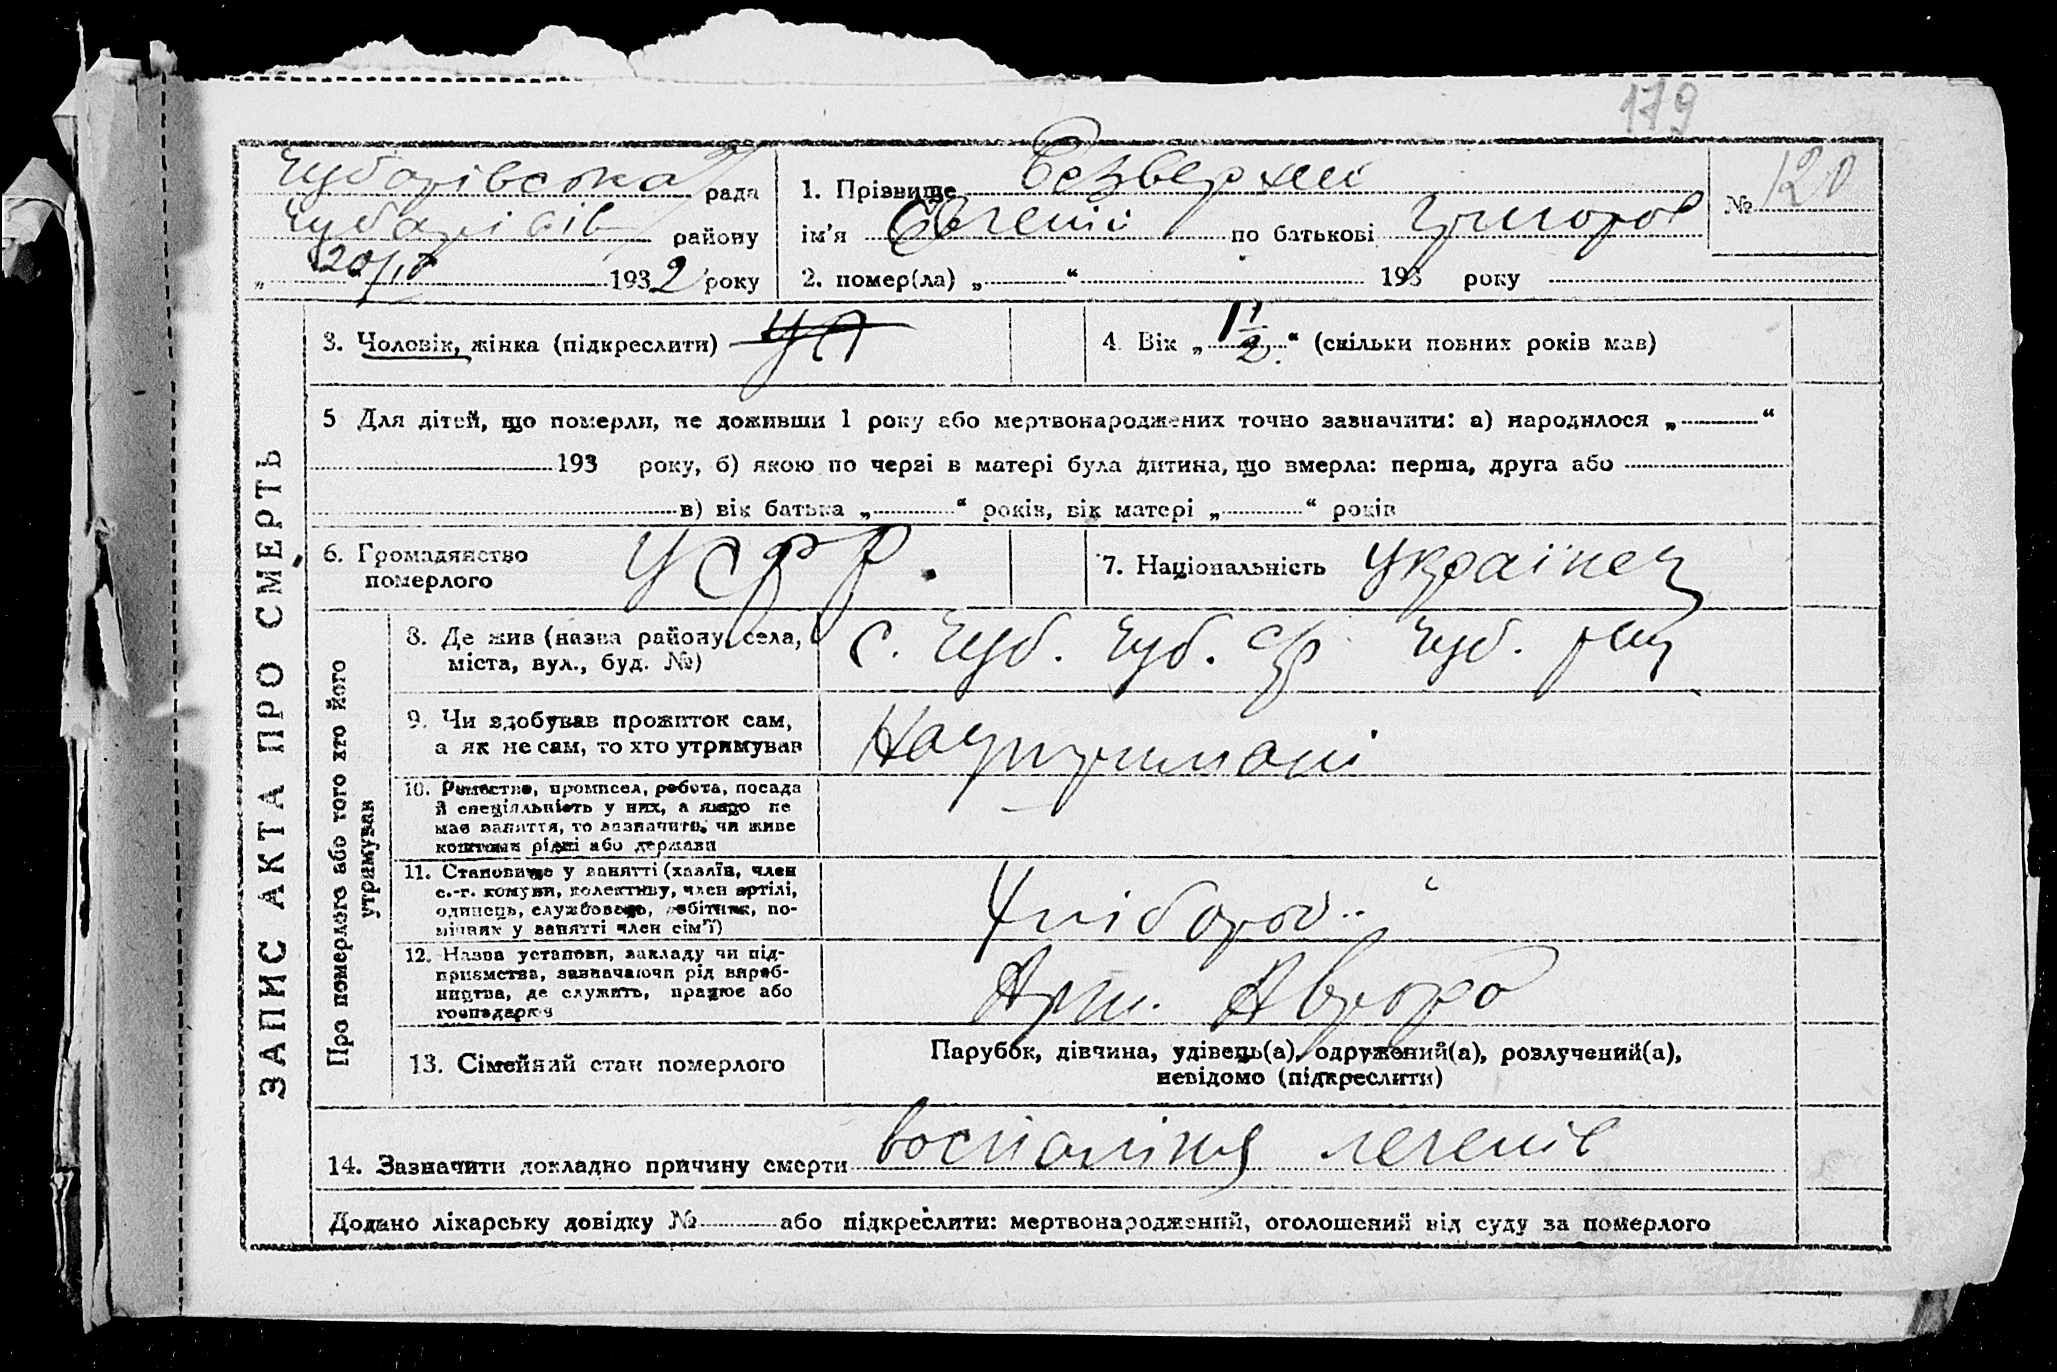 179
Чубарівська рада
Чубарівськ району
„ 20/IX 1932 року
1. Прізвище Безверхий
ім'я Євгеній по батькові Григоров
№ 120
2. помер(ла) „ “ 193 року
ЗАПИС АКТА ПРО СМЕРТЬ
3. Чоловік, жінка (підкреслити)
4. Вік „ 1 1/2 “ (скільки повних років мав)
5 Для дітей, що померли, не доживши 1 року або мертвонароджених точно зазначити: а) народилося „ “
193 року, б) якою по черзі в матері була дитина, що вмерла: перша, друга або
в) вік батька „ “ років, вік матері „ “ років
6. Громадянство
померлого
УСРР.
7. Національність Українец
Про померлого або того хто його
утримував
8. Де жив (назва району, села,
міста, вул., буд. №)
с. Чуб. Чуб. с/р Чуб. рну
9. Чи здобував прожиток сам,
а як не сам, то хто утримував
На утримані
10. Ремество, промисел, робота, посада
й спеціяльність у них, а якщо не
має заняття, то зазначити, чи живе
коштами рідні або держави
11. Становище у занятті (хазяїн, член
с.-г. комуни, колективу, член артілі,
одинець, службовець, робітник, по-
мічник у занятті член сім'ї)
Хлібороб
12. Назва установи, закладу чи під-
приємства, зазначаючи рід вироб-
ництва, де служить, працює або
господарює
Арт. Аврора
13. Сімейний стан померлого
Парубок, дівчина, удівець(а), одружений(а), розлучений(а),
невідомо (підкреслити)
14. Зазначити докладно причину смерти воспаління легенів
Додано лікарську довідку № або підкреслити: мертвонароджений, оголошений від суду за померлого